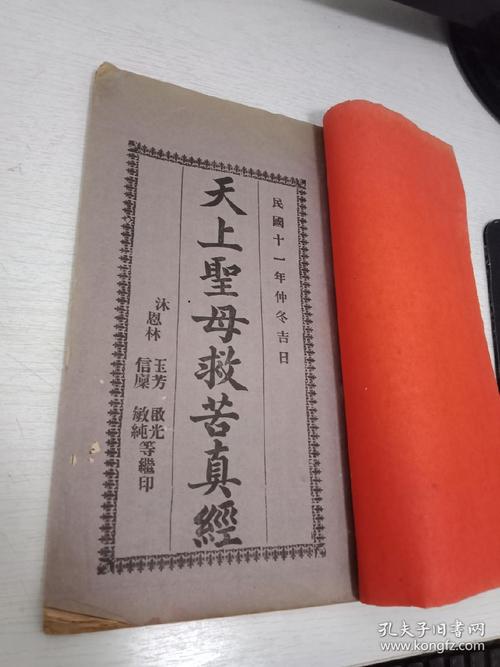 民國十一年仲冬吉日
天上聖母救苦真經
沐恩林 玉芳 啟光 信廩 敏純 等繼印
孔夫子旧书网
www.kongfz.com